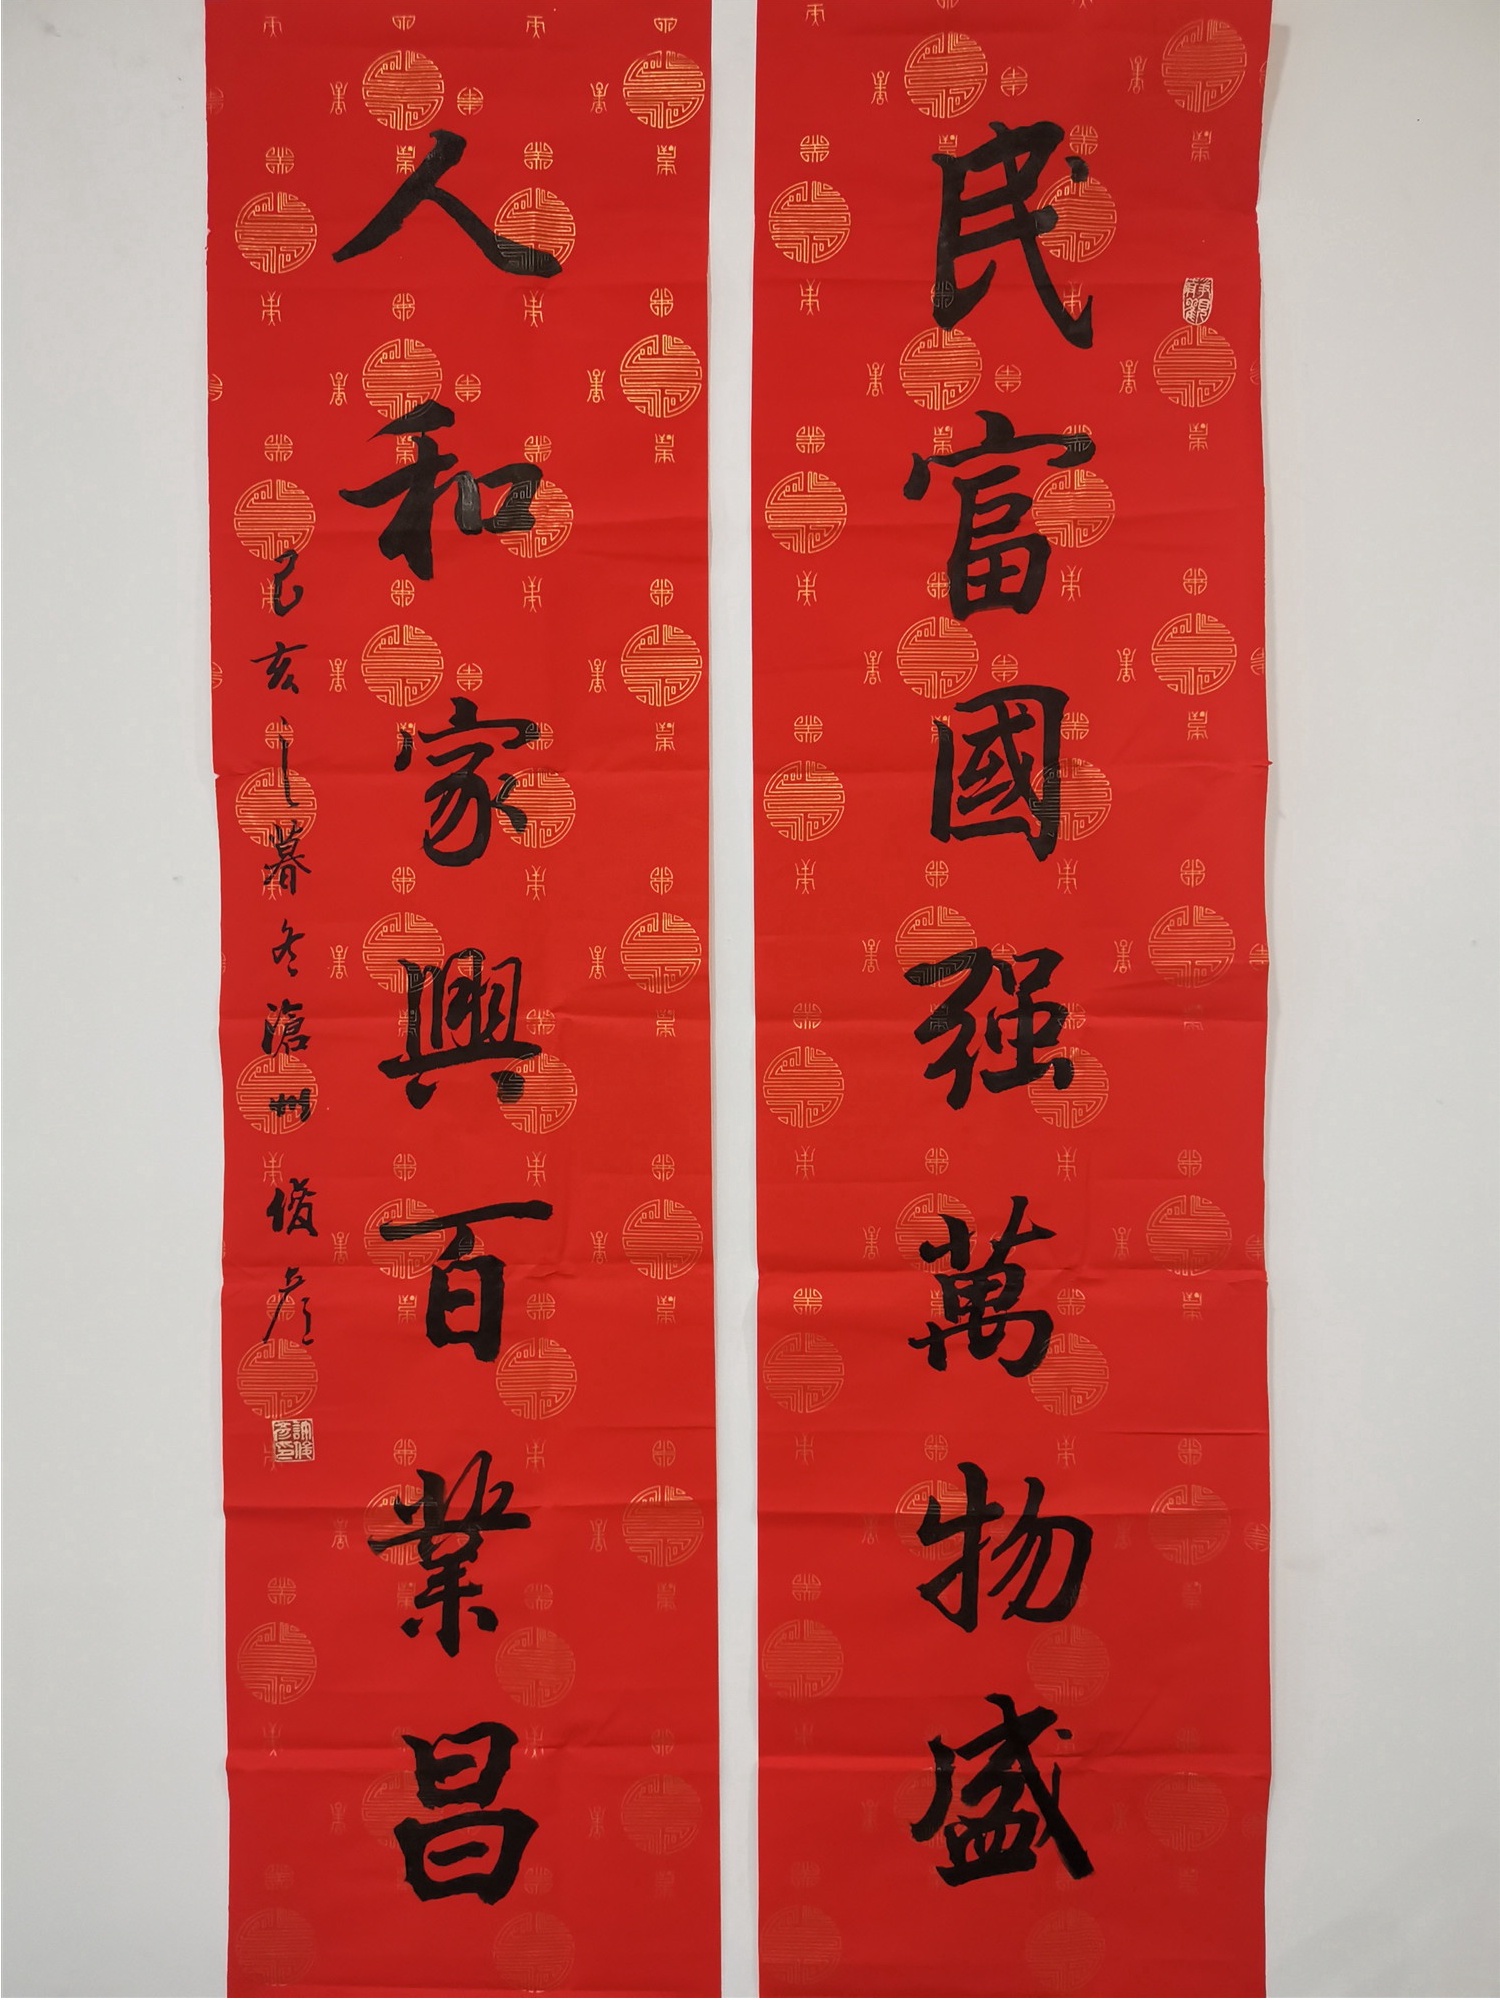 民富國强萬物盛
人和家興百業昌
己亥之暮冬滄州俊彦